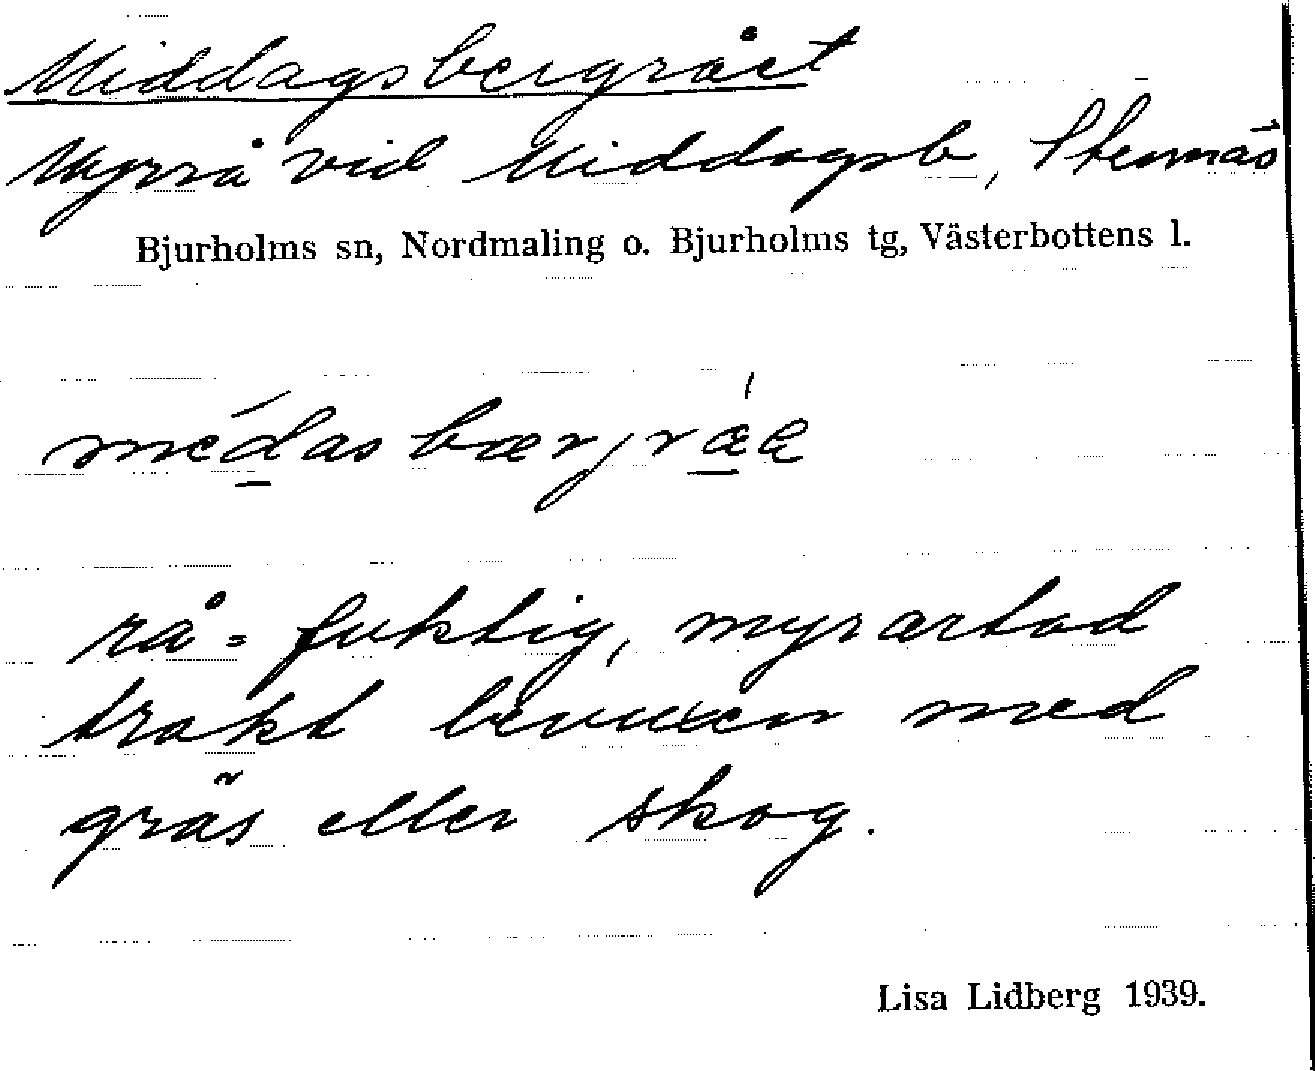 Middagsbergrået
Myrrå vid Middagsb, Stennäs
Bjurholms sn, Nordmaling o. Bjurholms tg, Västerbottens l.
rå = fuktig, myrartad
trakt bevuxen med
gräs eller skog.
Lisa Lidberg 1939.